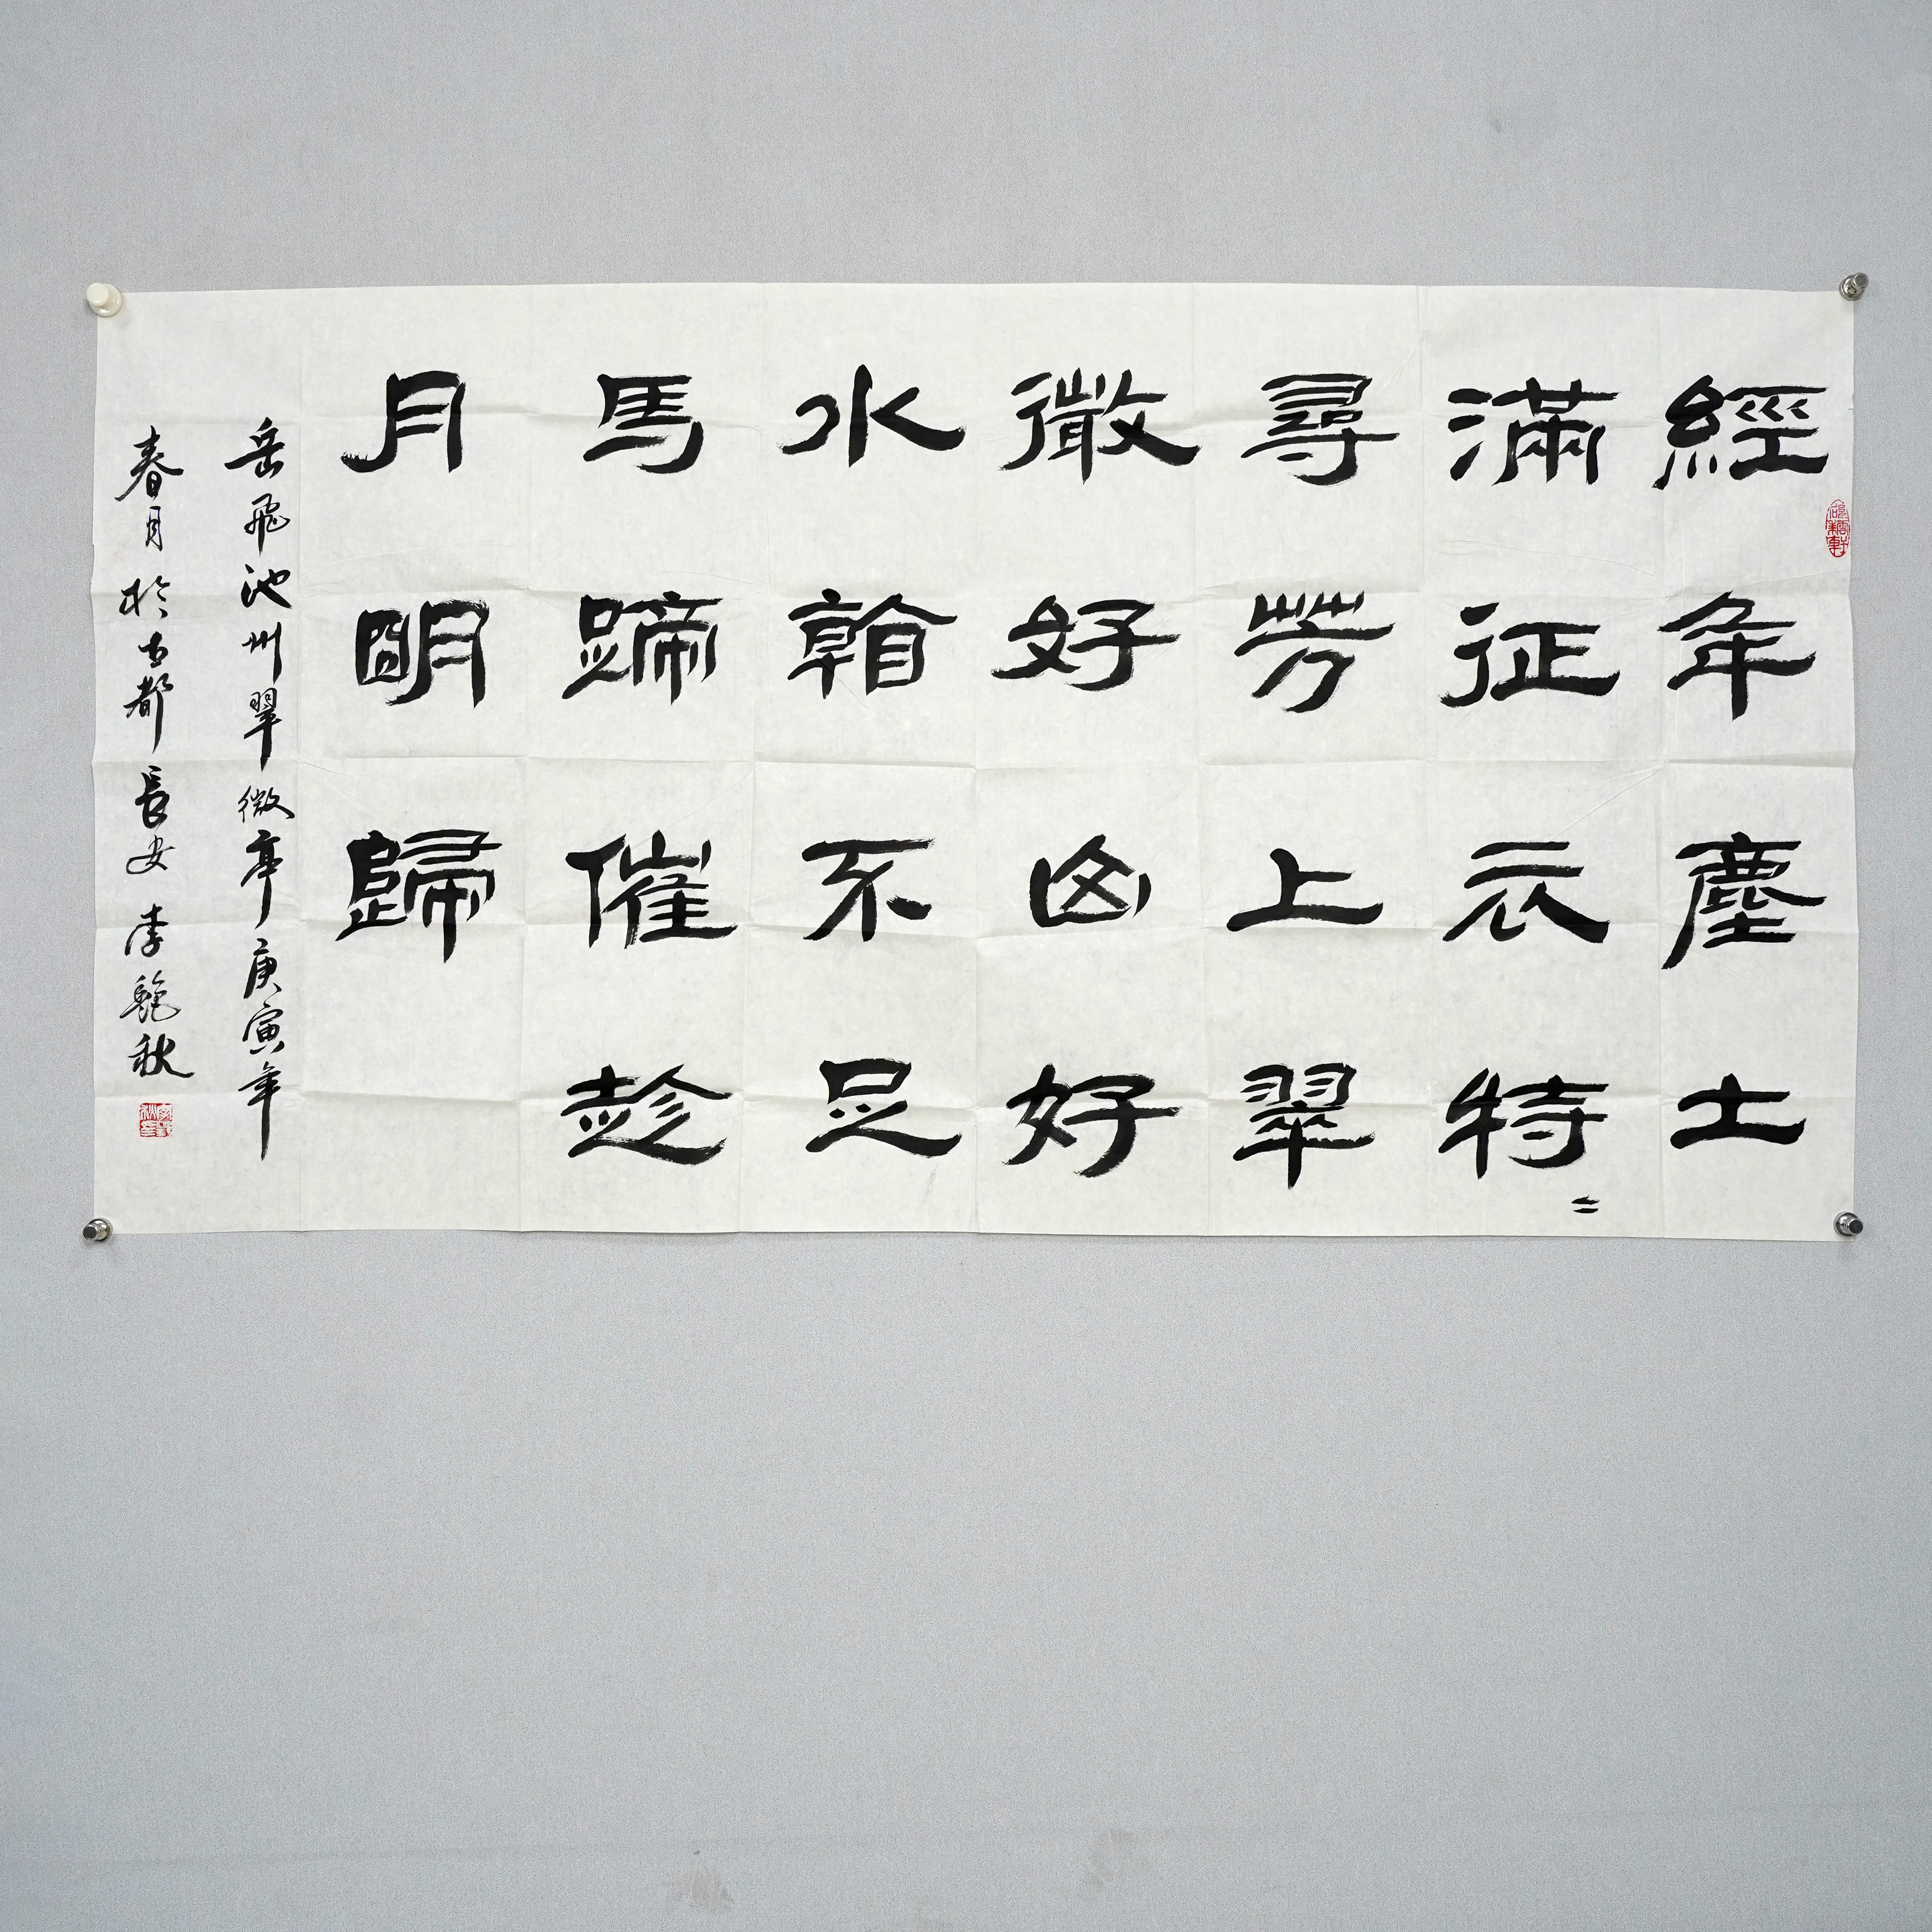 經年塵土
滿征衣特〻
尋芳上翠
微好山好
水看不足
馬蹄催趁
月明歸
岳飛池州翠微亭庚寅年
春月於古都長安李秋